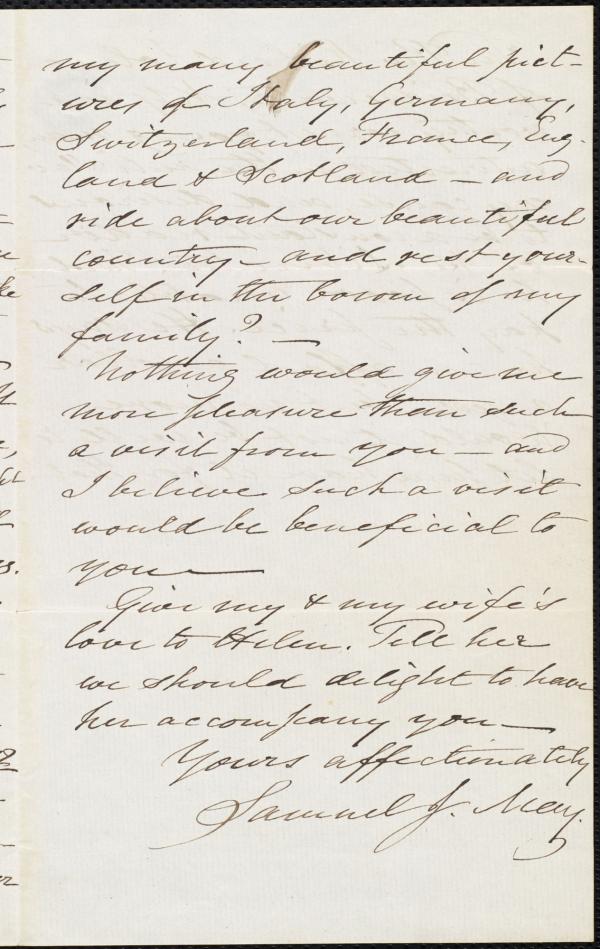 my many beautiful pict-
ures of Italy, Germany,
Switzerland, France, Eng-
land & Scotland — and
ride about our beautiful
country — and rest your-
self in the bosom of my
family? —
Nothing would give me
more pleasure than such
a visit from you — and
I believe such a visit
would be beneficial to
you —
Give my & my wife's
love to Helen. Tell her
we should delight to have
her accompany you —
Yours affectionately
Samuel J. May.